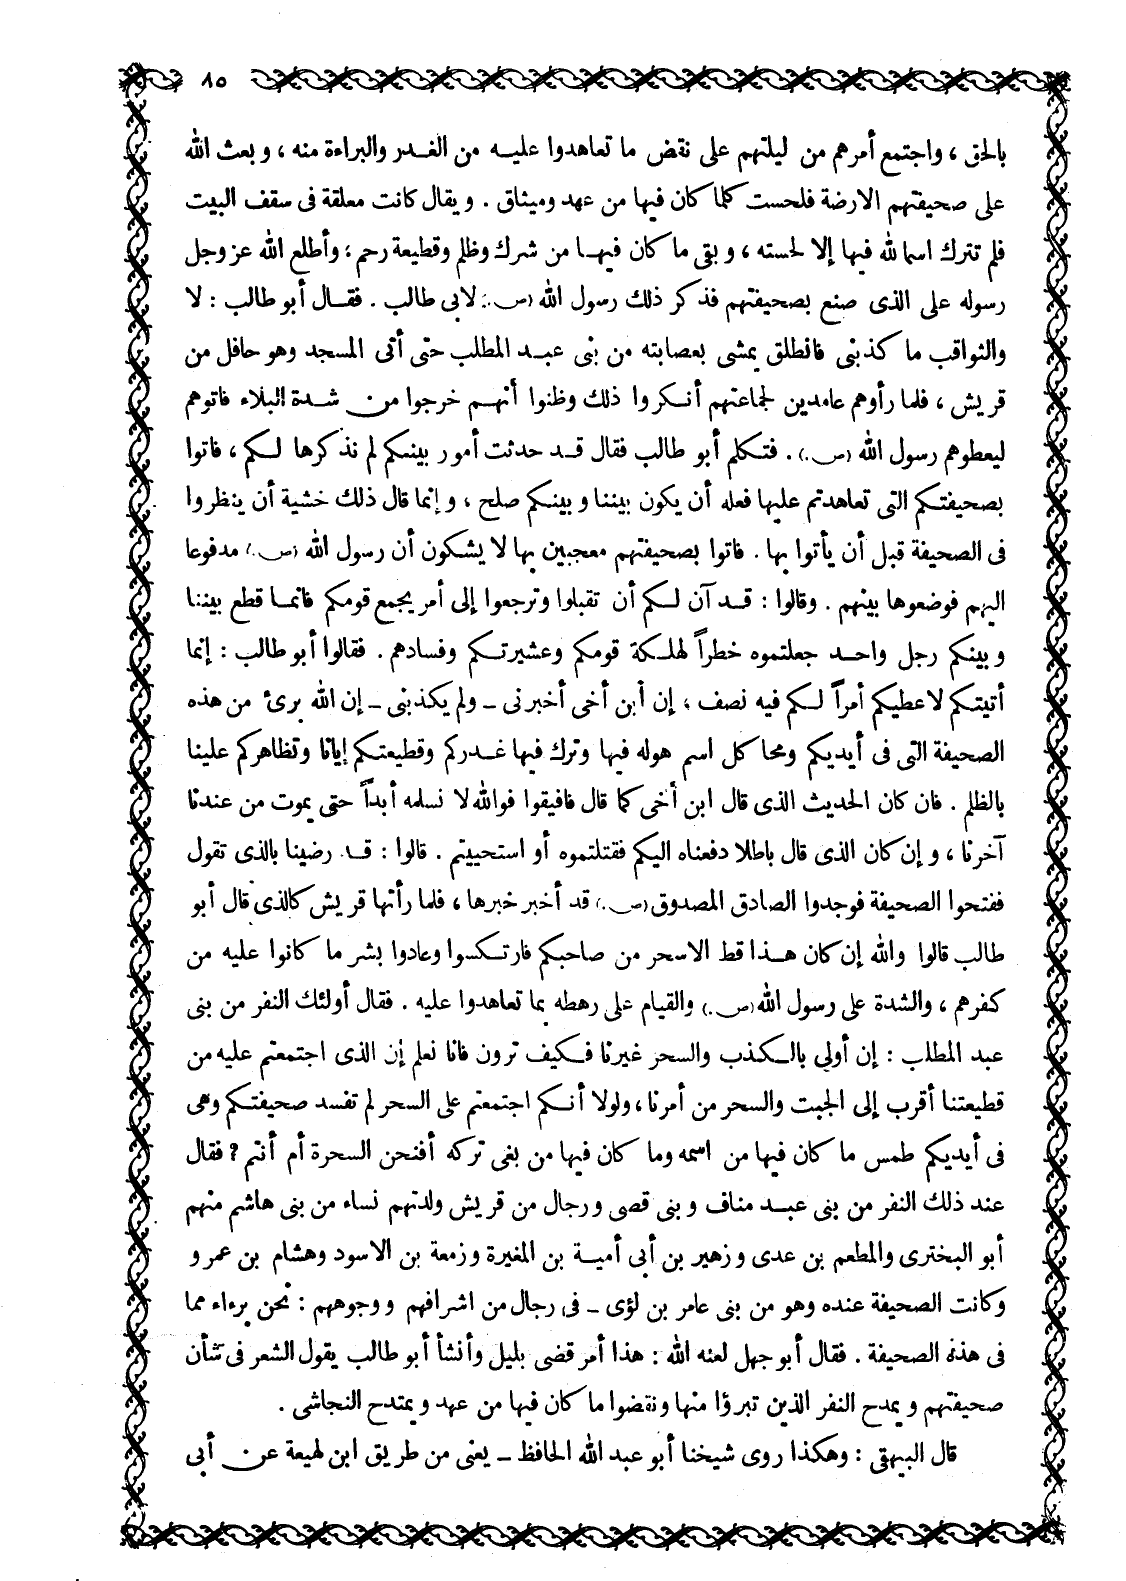 ٨٥
بالحق ، واجتمع أمرهم من ليلتهم على نقض ما تعاهدوا عليه من الغدر والبراءة منه ، وبعث الله
على صحيفتهم الارضة فلحست كلما كان فيها من عهد وميثاق . ويقال كانت معلقة فى سقف البيت
فلم تترك اسما لله فيها إلا لحسته ، وبقى ما كان فيها من شرك وظلم وقطيعة رحم ؛ وأطلع الله عز وجل
رسوله على الذى صنع بصحيفتهم فذكر ذلك رسول الله (ص.) لابى طالب . فقال أبو طالب : لا
والثواقب ما كذبنى فانطلق يمشى بعصابته من بنى عبد المطلب حتى أتى المسجد وهو حافل من
قريش ، فلما رأوهم عامدين لجماعتهم أنكروا ذلك وظنوا أنهم خرجوا من شدة البلاء فاتوهم
ليعطوهم رسول الله (ص.) . فتكلم أبو طالب فقال قد حدثت أمور بينكم لم نذكرها لكم ، فاتوا
بصحيفتكم التى تعاهدتم عليها فعله أن يكون بيننا وبينكم صلح ، وإنما قال ذلك خشية أن ينظروا
فى الصحيفة قبل أن يأتوا بها . فاتوا بصحيفتهم معجبين بها لا يشكون أن رسول الله (ص.) مدفوعا
اليهم فوضعوها بينهم . وقالوا : قد آن لكم أن تقبلوا وترجعوا إلى أمر يجمع قومكم فانما قطع بيننا
وبينكم رجل واحد جعلتموه خطراً لهلكة قومكم وعشيرتكم وفسادهم . فقالوا أبو طالب : إنما
أتيتكم لاعطيكم أمراً لكم فيه نصف ؛ إن أبن أخى أخبرنى ــ ولم يكذبنى ــ إن الله برئ من هذه
الصحيفة التى فى أيديكم ومحا كل اسم هوله فيها وترك فيها غدركم وقطيعتكم إيانا وتظاهركم علينا
بالظلم . فان كان الحديث الذى قال ابن أخى كما قال فافيقوا فوالله لا نسلمه أبداً حتى يموت من عندنا
آخرنا ، وإن كان الذى قال باطلا دفعناه اليكم فقتلتموه أو استحييتم . قالوا : قد رضينا بالذى تقول
ففتحوا الصحيفة فوجدوا الصادق المصدوق (ص.) قد أخبر خبرها ، فلما رأتها قريش كالذى قال أبو
طالب قالوا والله إن كان هذا قط الاسحر من صاحبكم فارتكسوا وعادوا بشر ما كانوا عليه من
كفرهم ، والشدة على رسول الله (ص.) والقيام على رهطه بما تعاهدوا عليه . فقال أولئك النفر من بنى
عبد المطلب : إن أولى بالكذب والسحر غيرنا فكيف ترون فانا نعلم إن الذى اجتمعتم عليه من
قطيعتنا أقرب إلى الجبت والسحر من أمرنا ، ولولا أنكم اجتمعتم على السحر لم تفسد صحيفتكم وهى
فى أيديكم طمس ما كان فيها من اسمه وما كان فيها من بغى تركه أفنحن السحرة أم أنتم ? فقال
عند ذلك النفر من بنى عبد مناف وبنى قصى ورجال من قريش ولدتهم نساء من بنى هاشم منهم
أبو البخترى والمطعم بن عدى وزهير بن أبى أمية بن المغيرة وزمعة بن الاسود وهشام بن عمرو
وكانت الصحيفة عنده وهو من بنى عامر بن لؤى ــ فى رجال من اشرافهم ووجوههم : نحن برءاء مما
فى هذه الصحيفة . فقال أبو جهل لعنه الله : هذا أمر قضى بليل وأنشأ أبو طالب يقول الشعر فى شأن
صحيفتهم ويمدح النفر الذين تبرؤا منها ونقضوا ما كان فيها من عهد ويمتدح النجاشى .
قال البيهقى : وهكذا روى شيخنا أبو عبد الله الحافظ ــ يعنى من طريق ابن لهيعة عن أبى